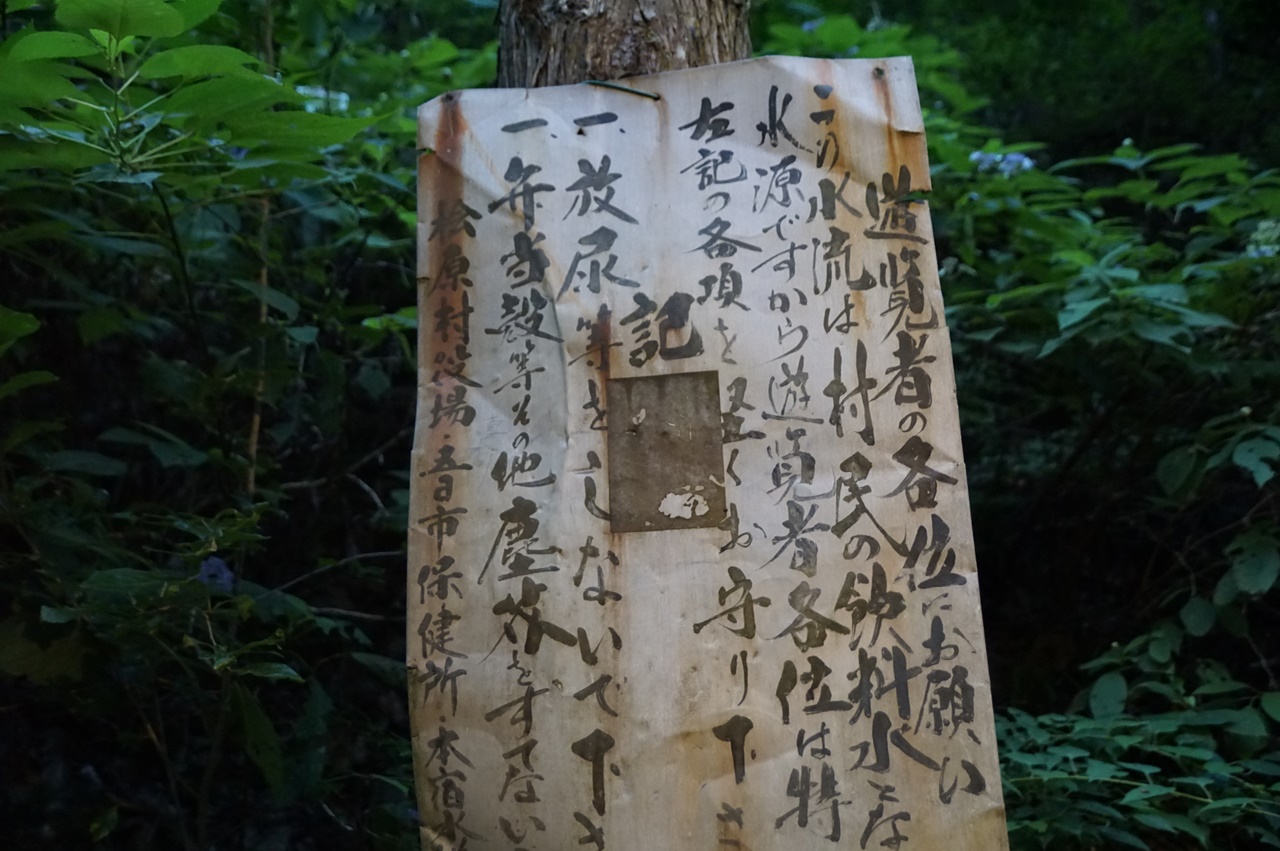 遊覧者の各位にお願い
この水流は村民の飲料水とな
水源ですから遊覧者各位は特
左記の各項を堅くお守り下さ
記
一、放尿等をしないで下さ
一、弁当殻等其の他塵芥をすてない
桧原村役場・五日市保健所・本宿水